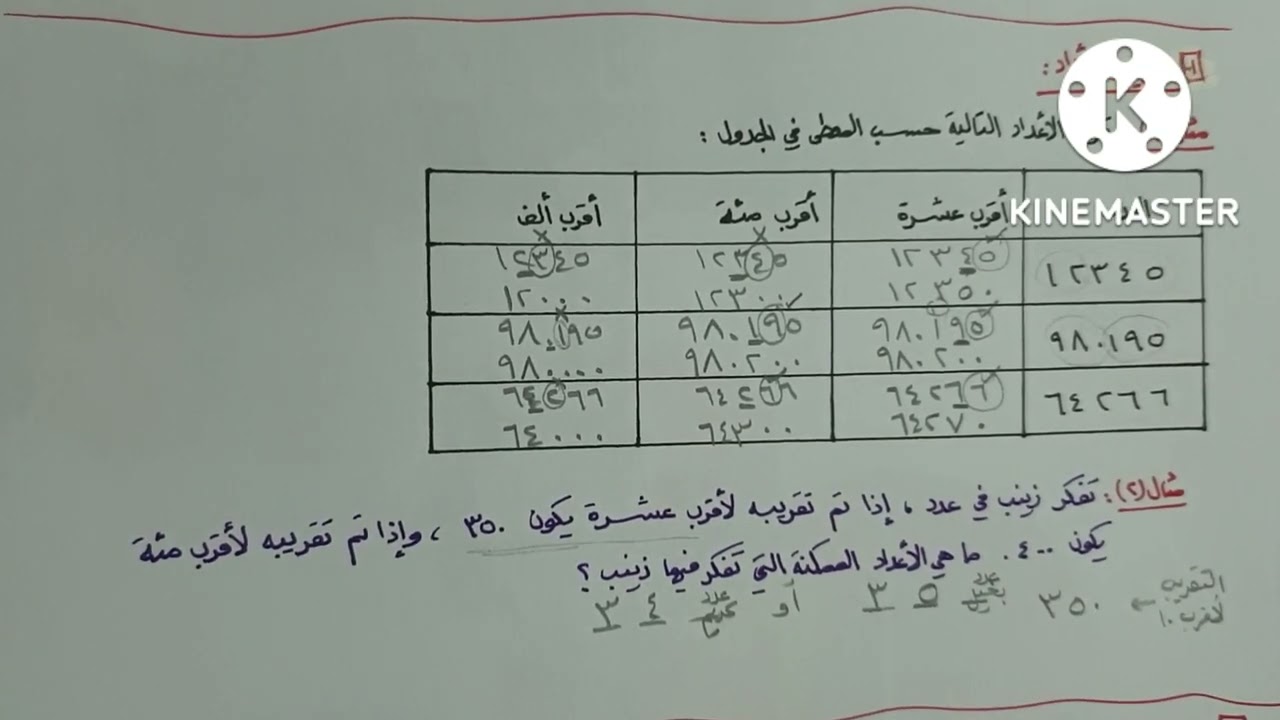 KINEMASTER
الأعداد التالية حسب المعطى في الجدول :
أقرب عشرة أقرب مئة أقرب ألف
١٢٣٤٥ ١٢٣٤٥ ١٢٣٤٥ ١٢٣٤٥
١٢٣٥٠ ١٢٣٠٠ ١٢٠٠٠
٩٨٠١٩٥ ٩٨٠١٩٥ ٩٨٠١٩٥ ٩٨٠١٩٥
٩٨٠٢٠٠ ٩٨٠٢٠٠ ٩٨٠٠٠٠
٦٤٢٦٦ ٦٤٢٦٦ ٦٤٢٦٦ ٦٤٢٦٦
٦٤٢٧٠ ٦٤٣٠٠ ٦٤٠٠٠
مثال (٢) : تفكر زينب في عدد ، إذا تم تقريبه لأقرب عشرة يكون ٣٥٠ ، وإذا تم تقريبه لأقرب مئة
يكون ٤٠٠ . ما هي الأعداد الممكنة التي تفكر فيها زينب ؟
التقريب لأقرب ١٠ ← ٣٥٠ ٣ ٥ عدد أو ٣ ٤ عدد